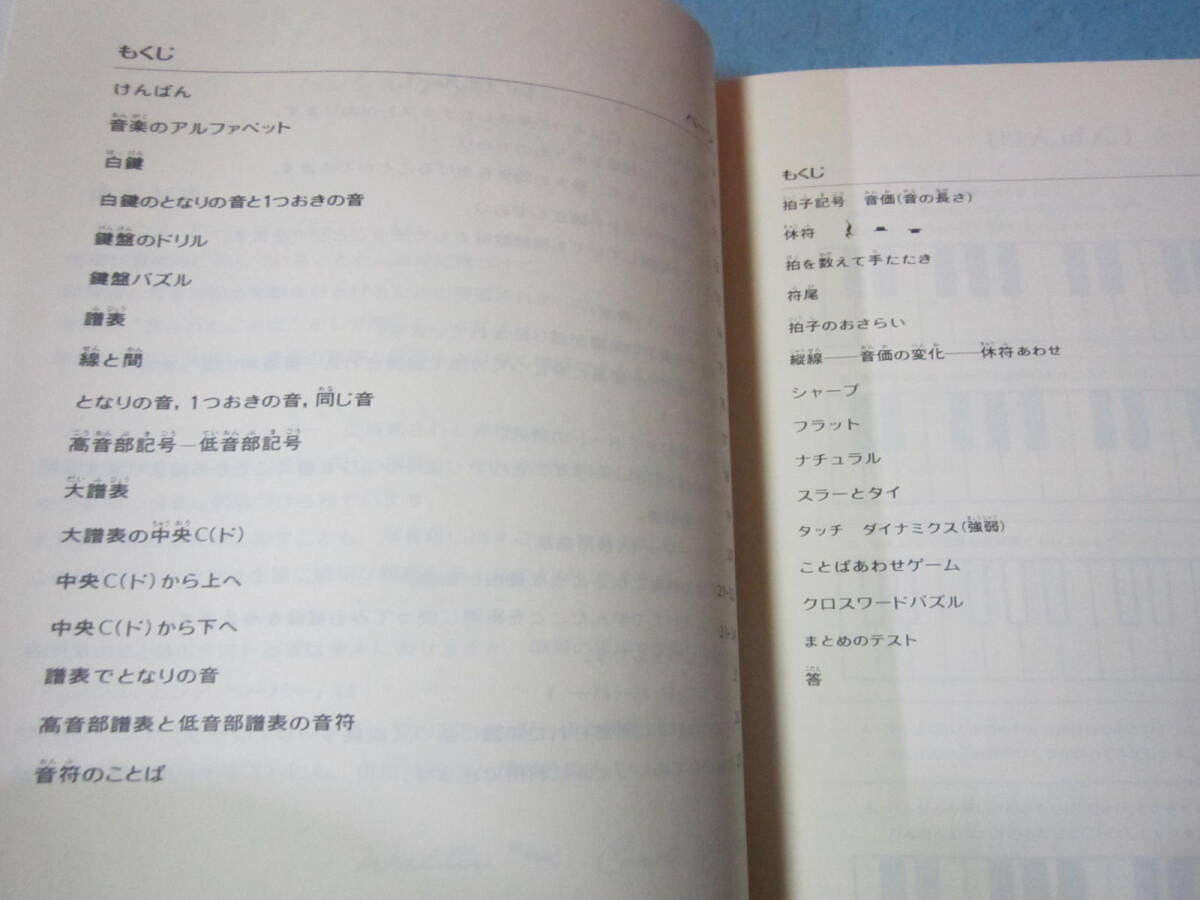 もくじ
けんばん
音楽のアルファベット
白鍵
白鍵のとなりの音と1つおきの音
鍵盤のドリル
鍵盤パズル
譜表
線と間
となりの音，1つおきの音，同じ音
高音部記号―低音部記号
大譜表
大譜表の中央C(ド)
中央C(ド)から上へ
中央C(ド)から下へ
譜表でとなりの音
高音部譜表と低音部譜表の音符
音符のことば
もくじ
拍子記号　音価(音の長さ)
休符
拍を数えて手たたき
符尾
拍子のおさらい
縦線――音価の変化――休符あわせ
シャープ
フラット
ナチュラル
スラーとタイ
タッチ　ダイナミクス(強弱)
ことばあわせゲーム
クロスワードパズル
まとめのテスト
答